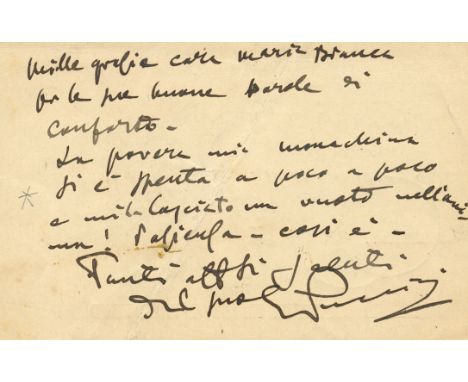 Mille grazie cara Maria Bianca
per le sue buone parole di
conforto -
La povera mia monachina
si è spenta a poco a poco
e mi ha lasciato un vuoto nell'ani-
ma! - così è -
Tanti aff.si saluti
del suo GPuccini